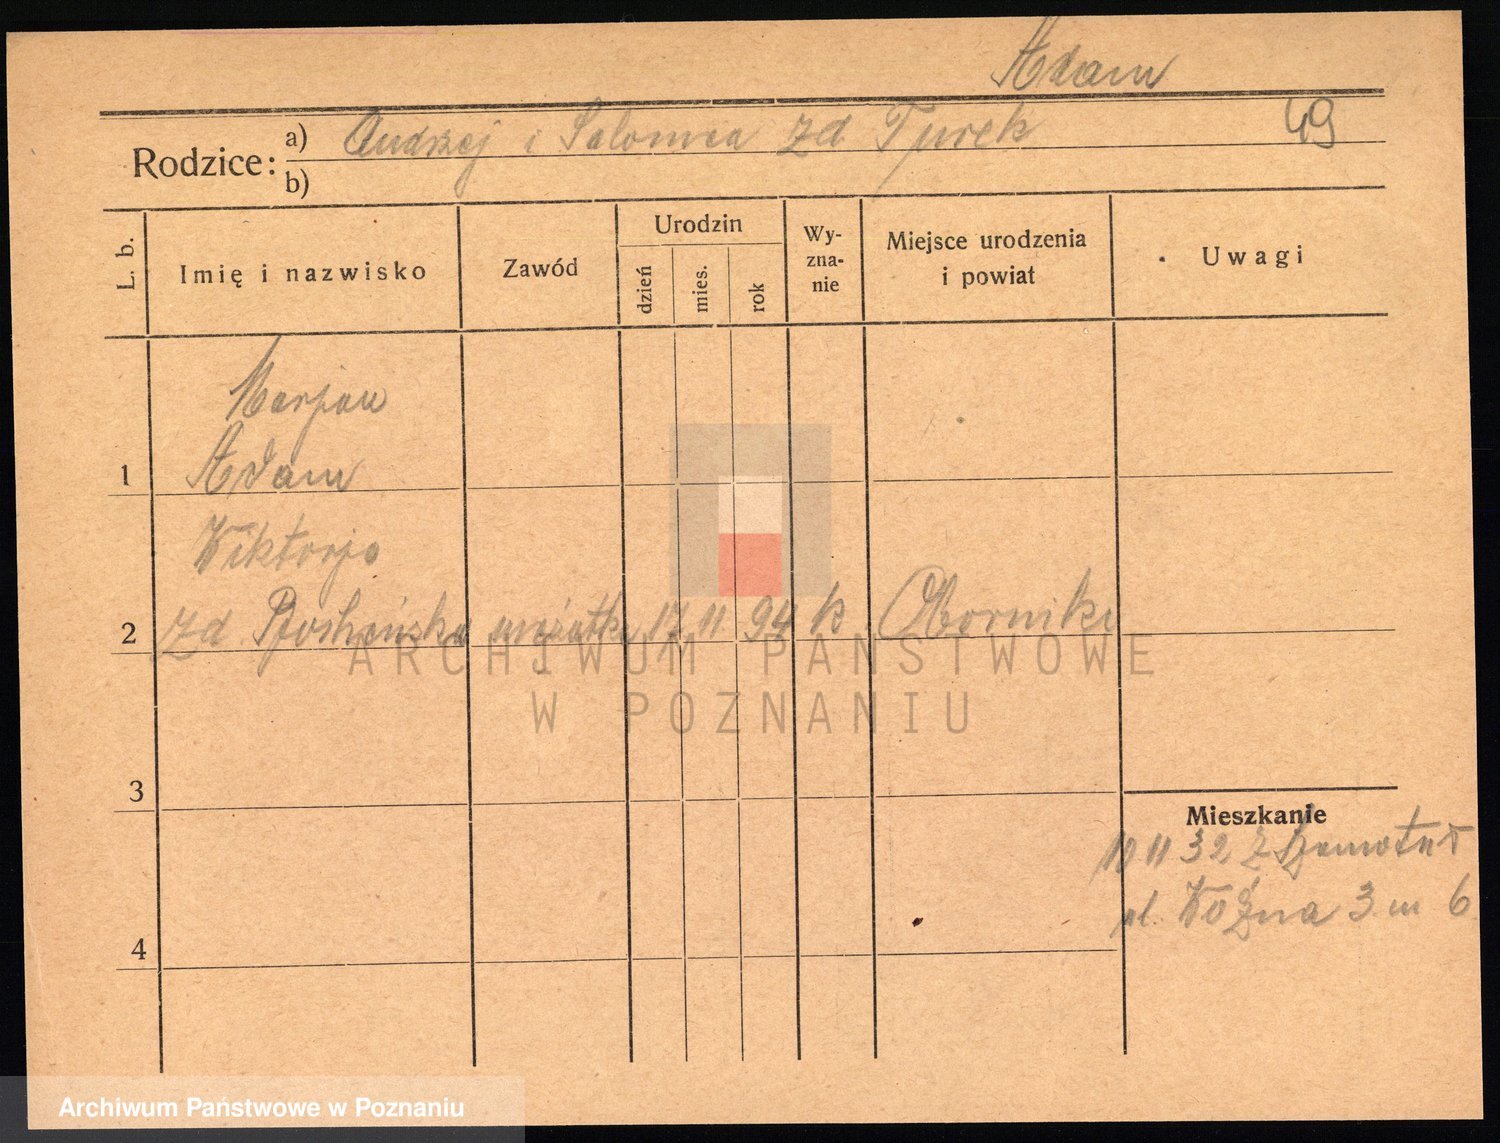 Adam
49
Rodzice: a) Andrzej i Salomea zd Turek
b)
L. b.
Imię i nazwisko
Zawód
Urodzin
dzień
mies.
rok
Wy-
zna-
nie
Miejsce urodzenia
i powiat
Uwagi
Marjan
1 Adam
Wiktorja
2 zd 17 11 94 k Oborniki
3
4
Mieszkanie
10 11 32 z Szamotuł
ul. Woźna 3 m 6
ARCHIWUM PAŃSTWOWE
W POZNANIU
Archiwum Państwowe w Poznaniu